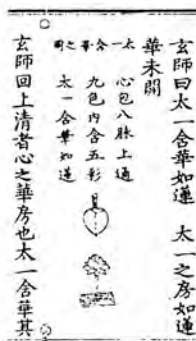 玄師曰太一含華如蓮 太一之房如蓮
華未開
太一含華之圖
心包八脉上通
九包內含五彩
太一含華如蓮
玄師回上清者心之華房也太一含華其